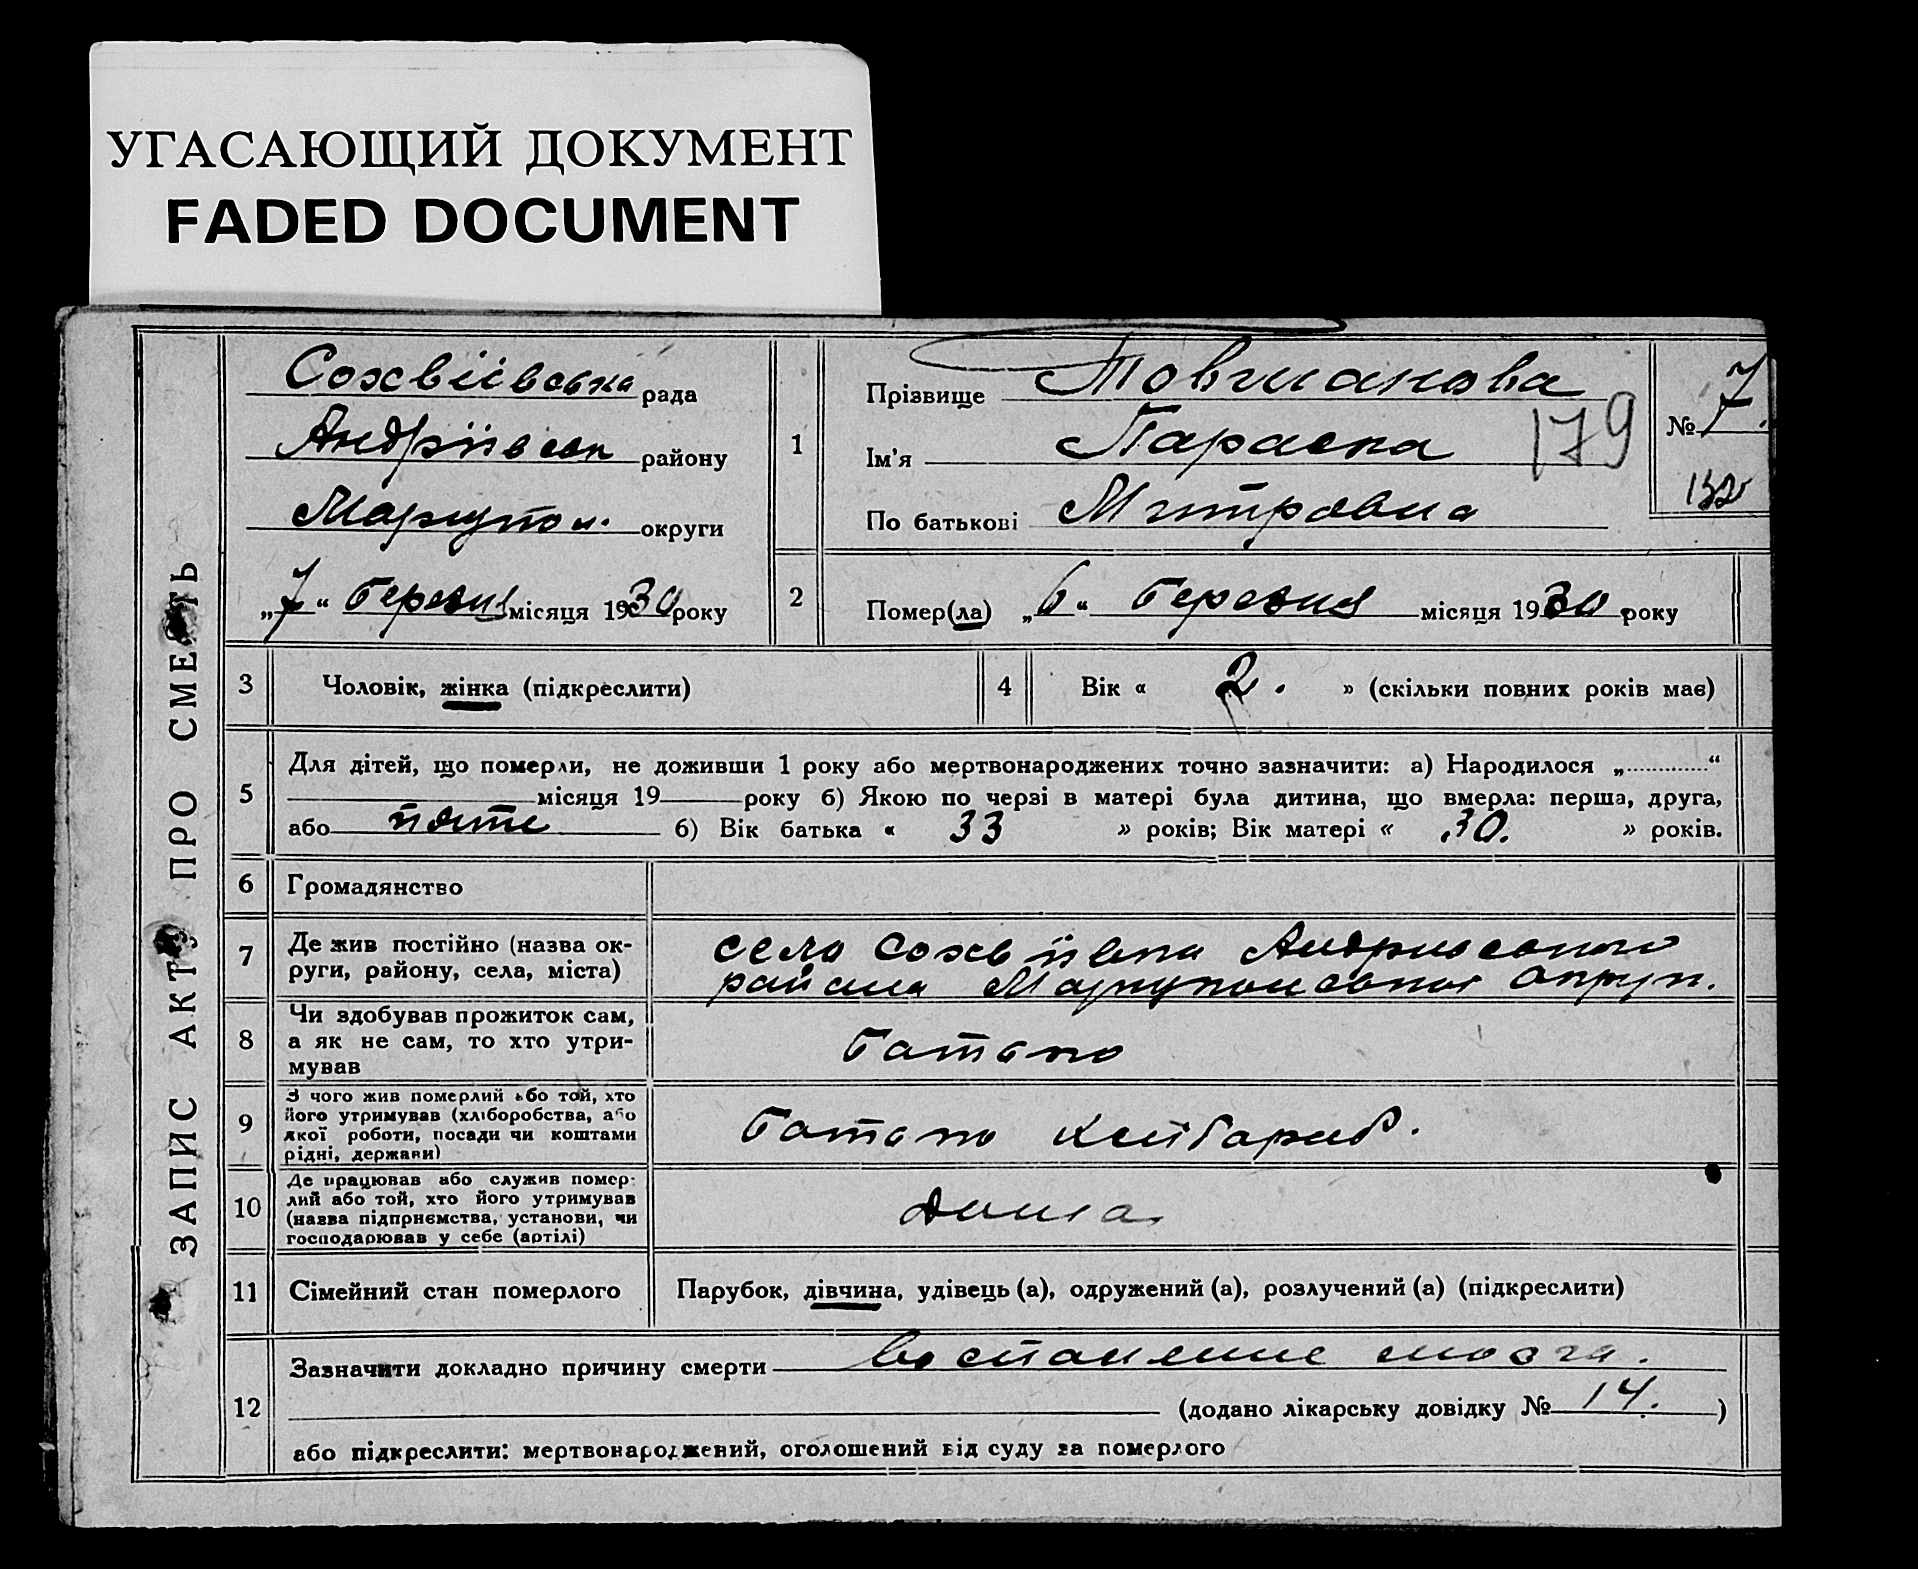 УГАСАЮЩИЙ ДОКУМЕНТ
FADED DOCUMENT
ЗАПИС АКТУ ПРО СМЕРТЬ
Сохвіївська рада
Андріївськ району
Маріупол. округи
„7“ березня місяця 1930 року
1
Прізвище Товмакова
Ім'я Параска
По батькові Митровна
179
№ 7.
132
2
Помер(ла) „6“ березня місяця 1930 року
3 Чоловік, жінка (підкреслити)
4 Вік « 2. » (скільки повних років має)
5
Для дітей, що померли, не доживши 1 року або мертвонароджених точно зазначити: а) Народилося „ “
місяця 19 року б) Якою по черзі в матері була дитина, що вмерла: перша, друга,
або пяте б) Вік батька « 33 » років; Вік матері « 30. » років.
6 Громадянство
7
Де жив постійно (назва ок-
руги, району, села, міста)
село Сохвіївка Андриевского
района Мариупольского округ.
8
Чи здобував прожиток сам,
а як не сам, то хто утри-
мував
Батько
9
З чого жив померлий або той, хто
його утримував (хліборобства, або
якої роботи, посади чи коштами
рідні, держави)
Батько хлібороб.
10
Де працював або служив помер-
лий або той, хто його утримував
(назва підприємства, установи, чи
господарював у себе (артілі)
дома
11 Сімейний стан померлого
Парубок, дівчина, удівець (а), одружений (а), розлучений (а) (підкреслити)
12
Зазначити докладно причину смерти воспаление мозга.
(додано лікарську довідку № 14. )
або підкреслити: мертвонароджений, оголошений від суду за померлого